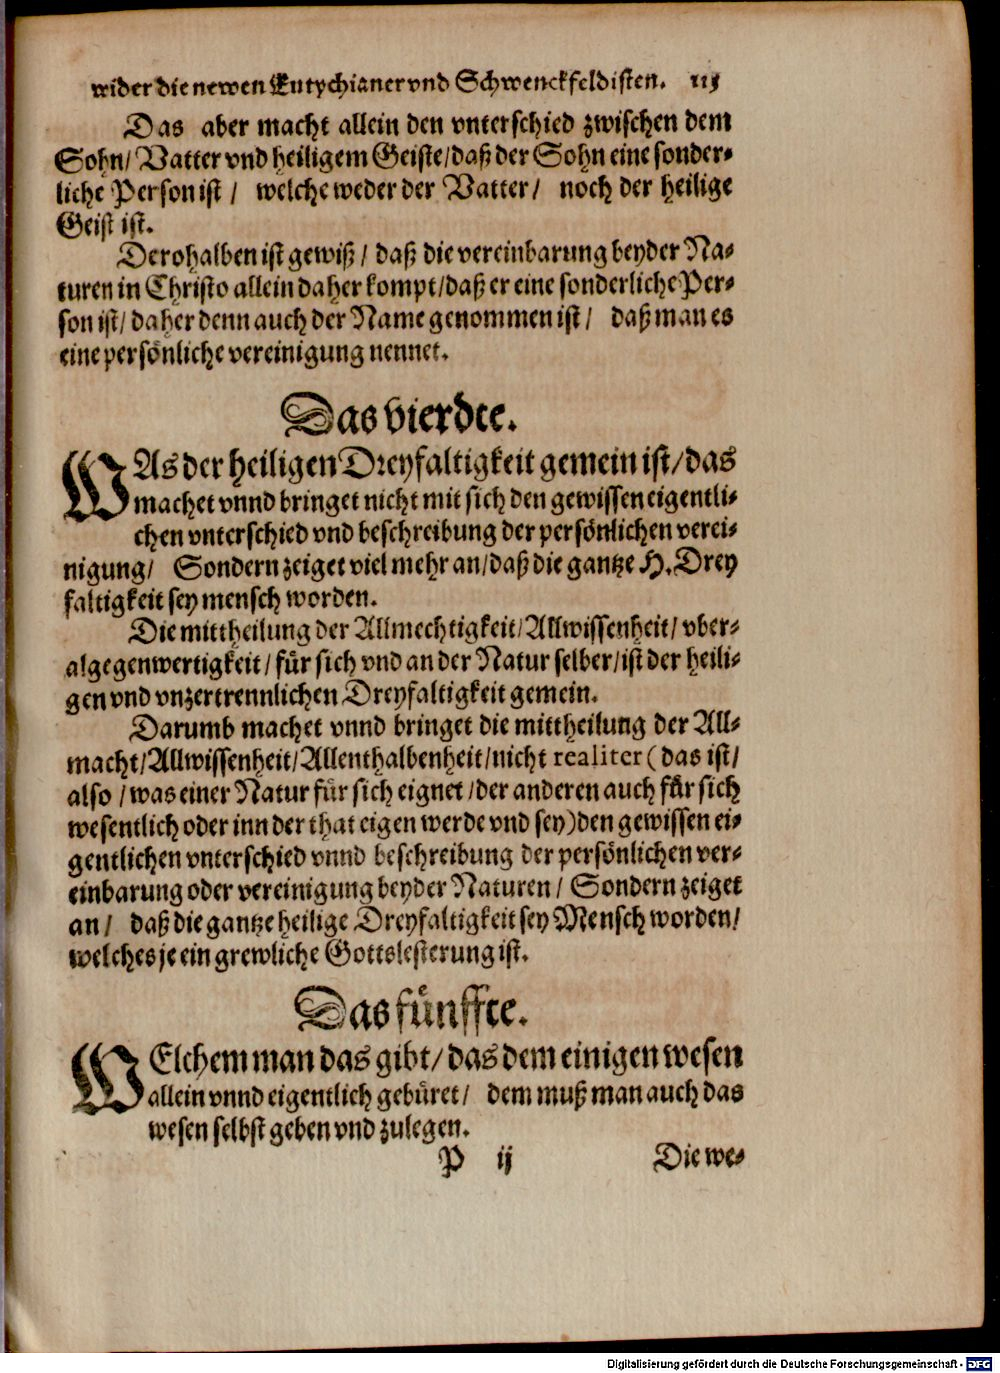 wider die newen Eutychianer vnd Schwenckfeldisten. 115
Das aber macht allein den vnterschied zwischen dem
Sohn/ Vatter vnd heiligem Geiste/ daß der Sohn eine sonder-
liche Person ist/ welche weder der Vatter/ noch der heilige
Geist ist.
Derohalben ist gewiß/ daß die vereinbarung beyder Na-
turen in Christo allein daher kompt/ daß er eine sonderliche Per-
son ist/ daher denn auch der Name genommen ist/ daß man es
eine persönliche vereinigung nennet.
Das vierdte.
WAs der heiligen Dreyfaltigkeit gemein ist/ das
machet vnnd bringet nicht mit sich den gewissen eigentli-
chen vnterschied vnd beschreibung der persönlichen verei-
nigung/ Sondern zeiget viel mehr an/ daß die gantze H. Drey
faltigkeit sey mensch worden.
Die mittheilung der Allmechtigkeit/ Allwissenheit/ vber-
algegenwertigkeit/ für sich vnd an der Natur selber/ ist der heili-
gen vnd vnzertrennlichen Dreyfaltigkeit gemein.
Darumb machet vnnd bringet die mittheilung der All-
macht/ Allwissenheit/ Allenthalbenheit/ nicht realiter (das ist/
also/ was einer Natur für sich eignet/ der anderen auch für sich
wesentlich oder inn der that eigen werde vnd sey) den gewissen ei-
gentlichen vnterschied vnnd beschreibung der persönlichen ver-
einbarung oder vereinigung beyder Naturen/ Sondern zeiget
an/ daß die gantze heilige Dreyfaltigkeit sey Mensch worden/
welches je ein grewliche Gottslesterung ist.
Das fünffte.
WElchem man das gibt/ das dem einigen wesen
allein vnnd eigentlich gebüret/ dem muß man auch das
wesen selbst geben vnd zulegen.
P ij Die we-
Digitalisierung gefördert durch die Deutsche Forschungsgemeinschaft - DFG